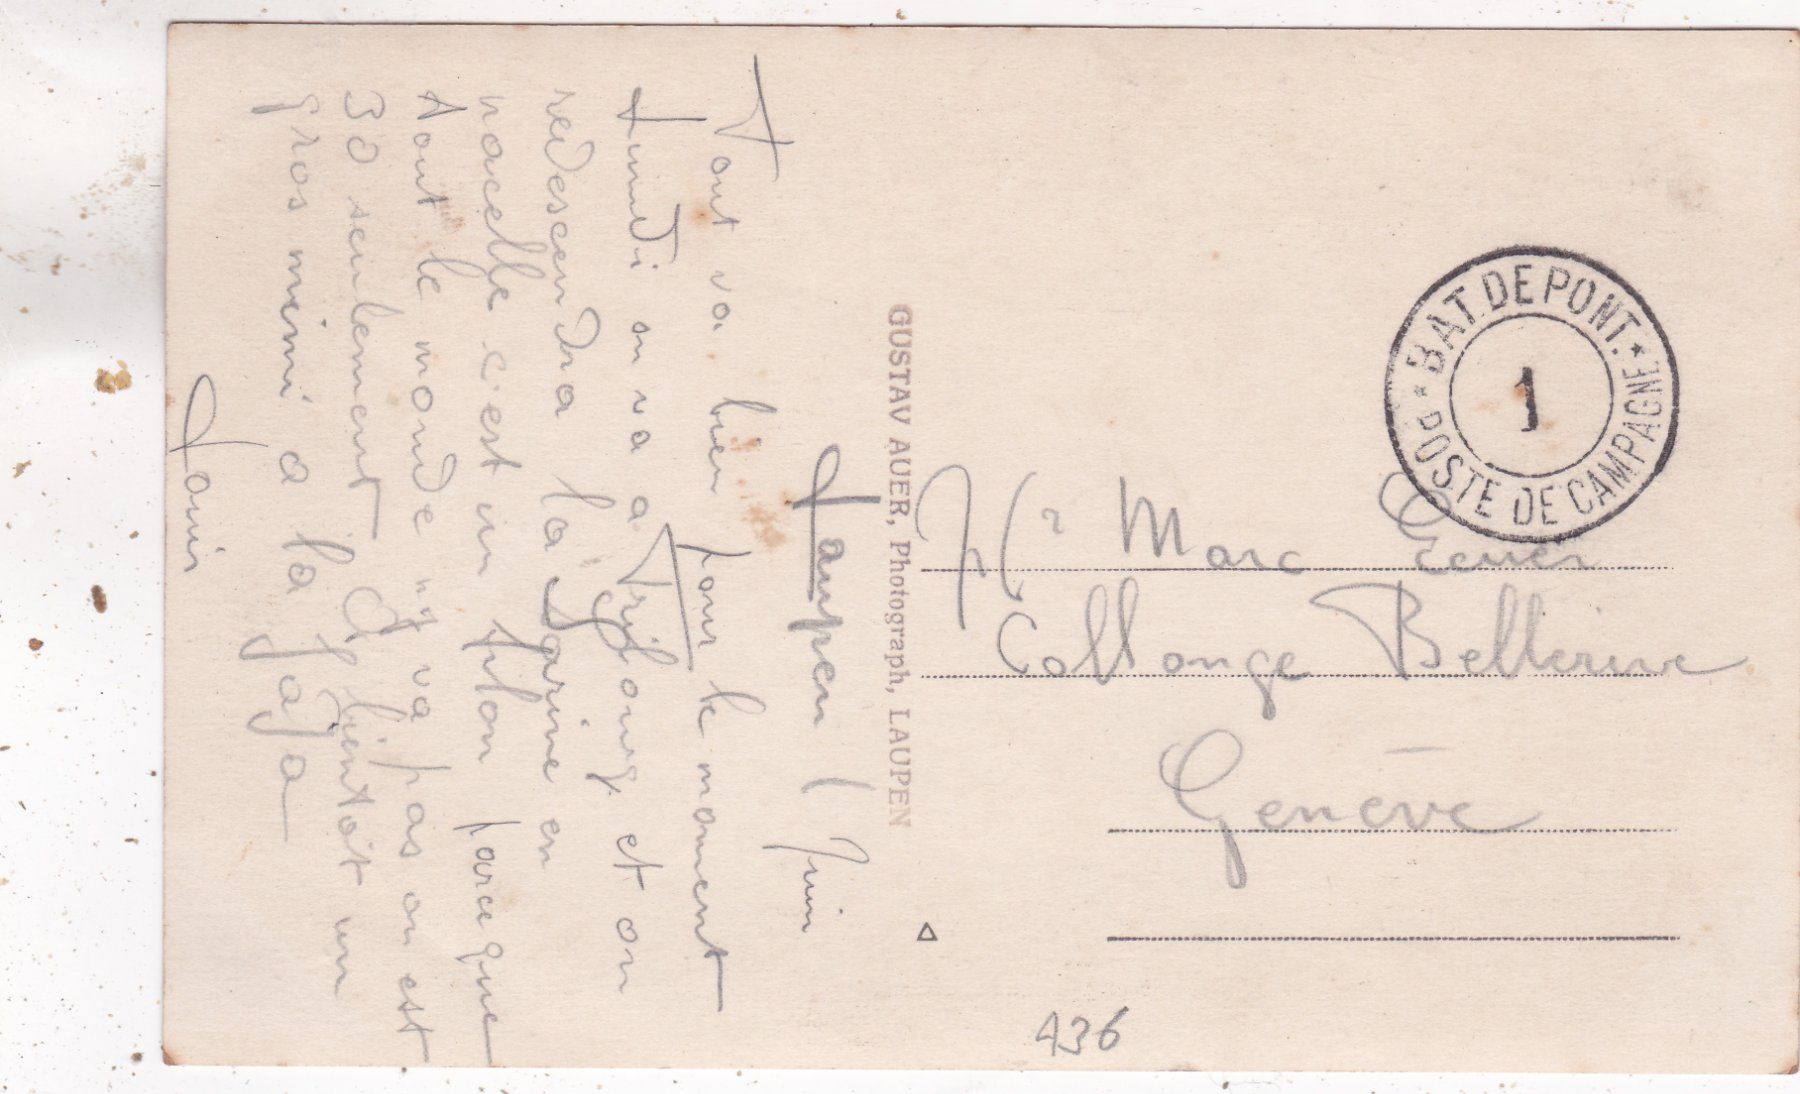 Laupen 1 Juin
Tout va bien pour le moment
Lundi on va a Frybourg et on
redescendra la Sarine en
nacelle c'est un filon parceque
tout le monde n'y va pas on est
30 seulement A bientôt un
gros mimi a la Jaja
Louis
GUSTAV AUER, Photograph, LAUPEN
BAT. DE PONT.
1
POSTE DE CAMPAGNE
Marc
Collonge Bellerive
Genève
436